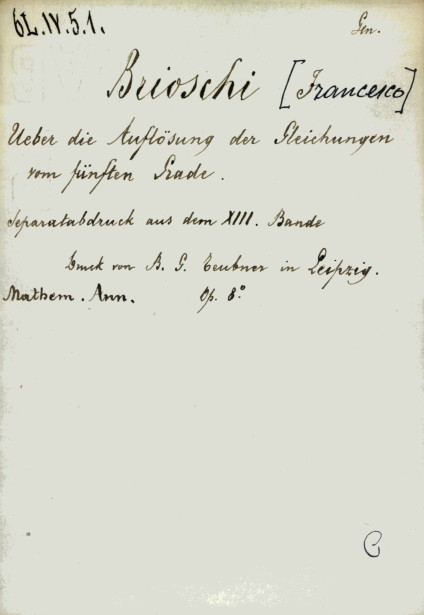 6L.IV.5.1.
Gen.
Brioschi [Francesco]
Ueber die Auflösung der Gleichungen
vom fünften Grade.
Separatabdruck aus dem XIII. Bande
Druck von B. G. Teubner in Leipzig.
Mathem. Ann. Op. 8°
C